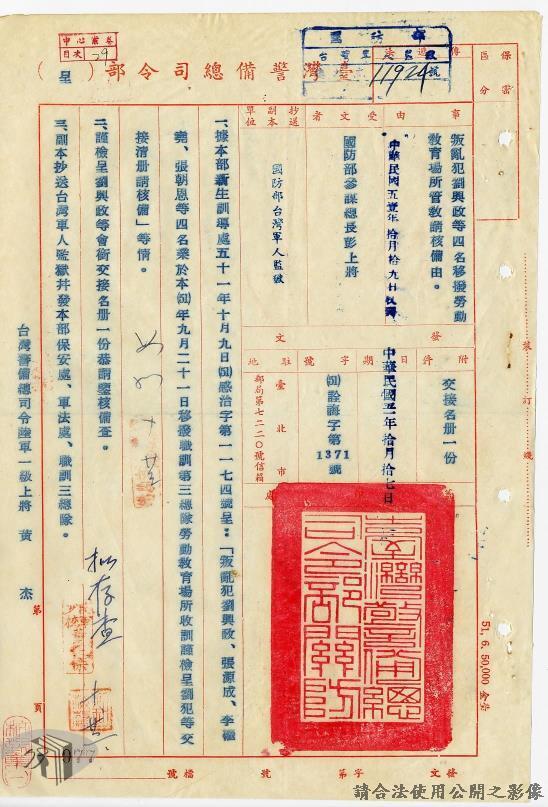 中心卷
目次 29
國防部
台灣
11924號
臺灣警備總司令部（呈）
保密區分
事由
叛亂犯劉興政等四名移撥勞動教育場所管教請核備由。
受文者
國防部參謀總長彭上將
中華民國五壹年拾月拾九日收到
抄送副本單位
國防部台灣軍人監獄
附件
交接名册一份
發文
日期
中華民國五一年拾月拾七日
字號
(51)詮海字第1371號
駐地
臺北市
郵局第七二二〇號信箱
臺灣警備總司令部關防
一、據本部新生訓導處五十一年十月九日(51)感治字第一一七四號呈：「叛亂犯劉興政、張源成、李極
堯、張朝恩等四名業於本(51)年九月二十一日移撥職訓第三總隊勞動教育場所收訓謹檢呈劉犯等交
接清册請核備」等情。
二、謹檢呈劉興政等會銜交接名册一份恭請鑒核備查。
三、副本抄送台灣軍人監獄并發本部保安處、軍法處、職訓三總隊。
台灣警備總司令陸軍一級上將 黃杰
擬存查
裝訂線
51. 6. 50,000
第 頁
077
發文 字第 號
檔號
請合法使用公開之影像